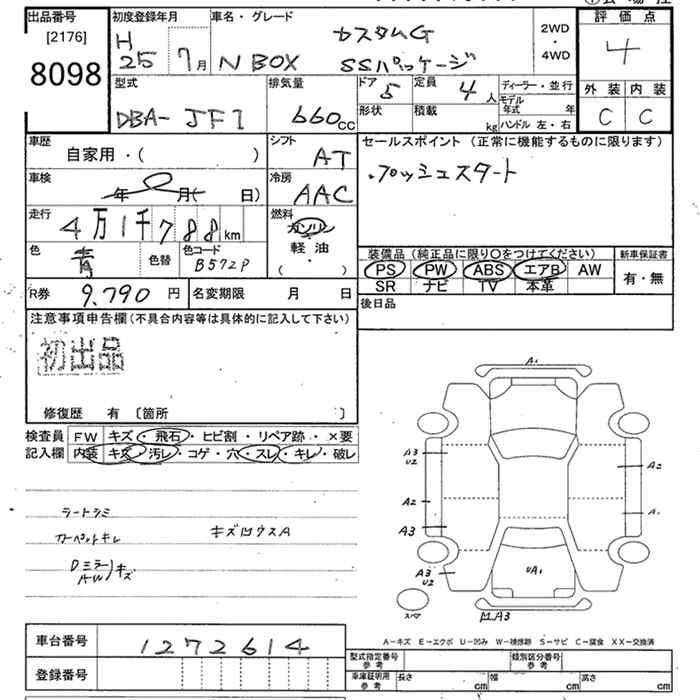 出品番号 初度登録年月 車名・グレード 評価点
[2176] H 25 7月 カスタムG 2WD
8098 N BOX SSパッケージ ・ 4WD 4
型式 排気量 ドア 5 定員 4人 ディーラー・並行 外装 内装
DBA- JF1 660cc 形状 積載 kg モデル年式 年 C C
ハンドル 左・右
車歴 シフト セールスポイント (正常に機能するものに限ります)
自家用・( ) AT
車検 冷房 ・プッシュスタート
年 月( 日) AAC
走行 燃料
4万1千788km ガソリン
色 色替 色コード 軽油 装備品 (純正品に限り〇をつけてください) 新車保証書
青 B572P ・ PS PW ABS エアB AW 有・無
( ) SR ナビ TV 本革
R券 9,790円 名変期限 月 日 後日品
注意事項申告欄(不具合内容等は具体的に記入して下さい)
初出品
修復歴 有 〔箇所 〕
検査員 FW キズ・飛石・ヒビ割・リペア跡・×要
記入欄 内装 キズ・汚レ・コゲ・穴・スレ・キレ・破レ
A1
A3
U2
A2
A2
A3
A1
A3
U2
UA1
A3
スペア
カーペットキレ
Dミラー キズ
AW
A-キズ E-エクボ U-凹み W-補修跡 S-サビ C-腐食 XX-交換済
車台番号 1272614 型式指定番号 参考 類別区分番号 参考
登録番号 車庫証明用 参考 長さ cm 幅 cm 高さ cm